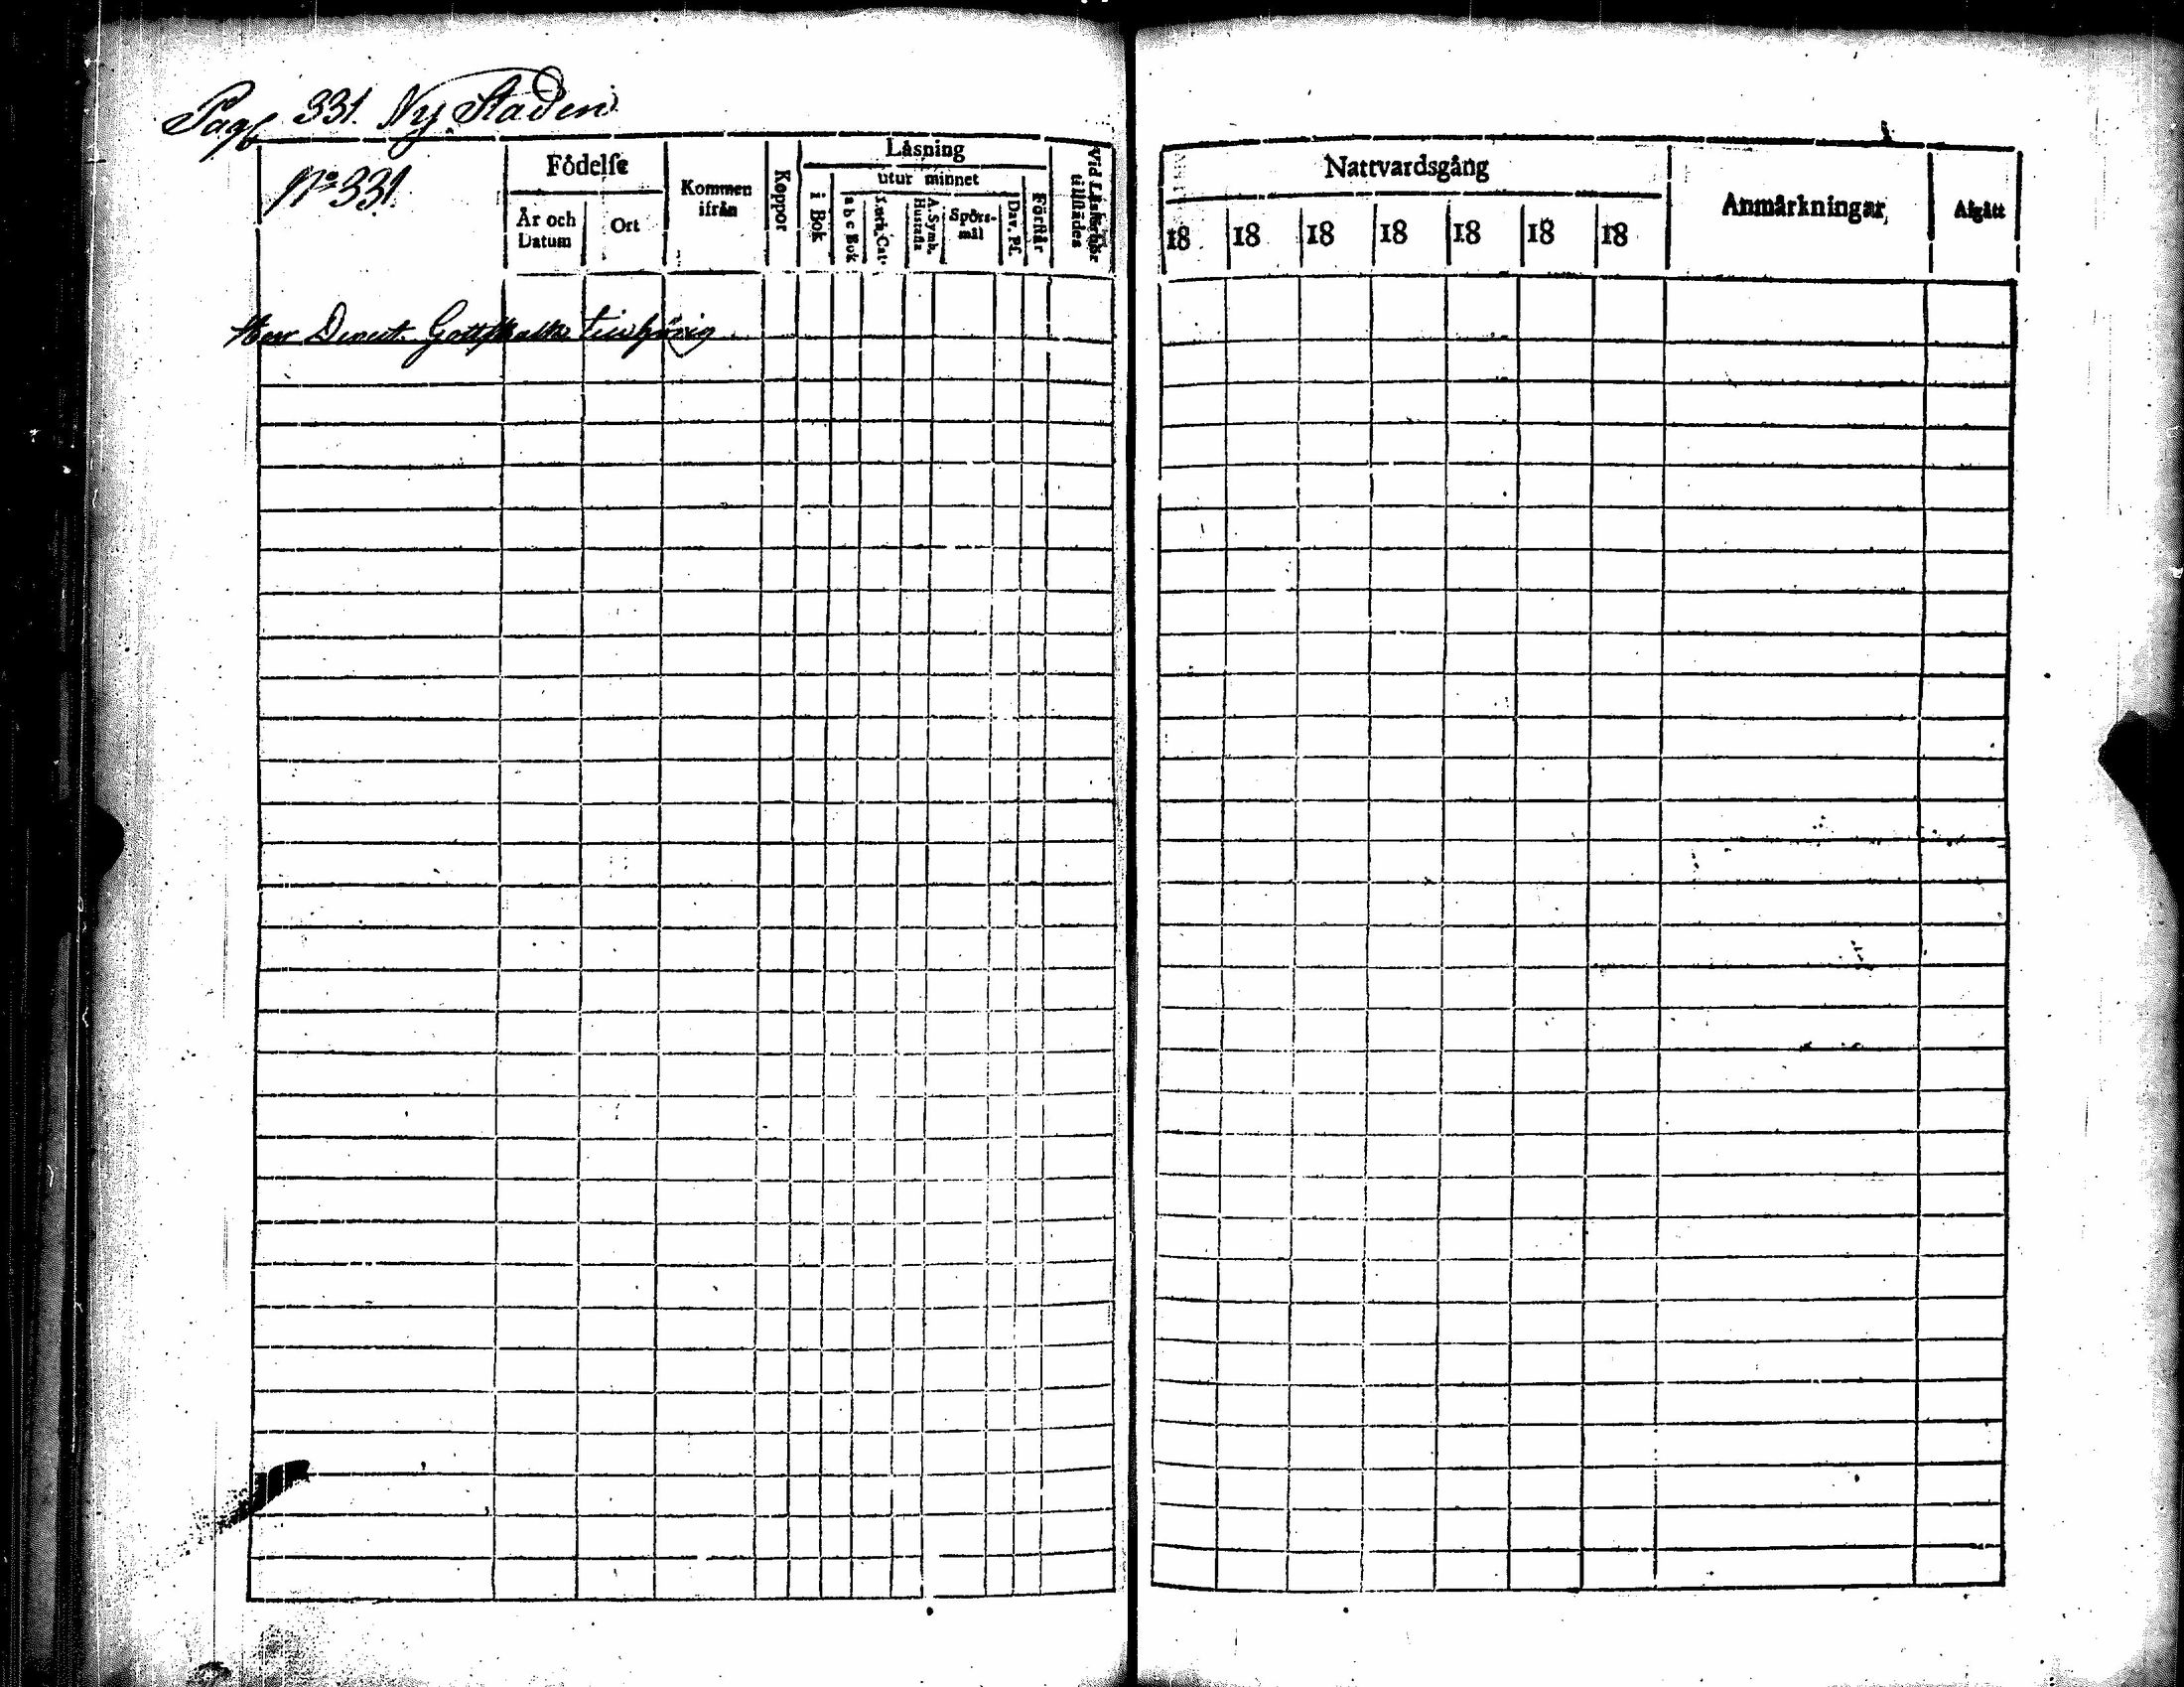 Pag 331. Ny Staden
N:o 331.
Födelse
År och Datum
Ort
Kommen ifrån
Koppor
Läsning
i Bok
utur minnet
a b c Bok
A. Symb. Hustafla
Spörs-mål
Dav. Ps.
Förstår
Vid Läsförhör tillstädes
Nattvardsgång
18 18 18 18 18 18 18
Anmärkningar
Afgått
Herr Direct. Gottskalks tillhörig